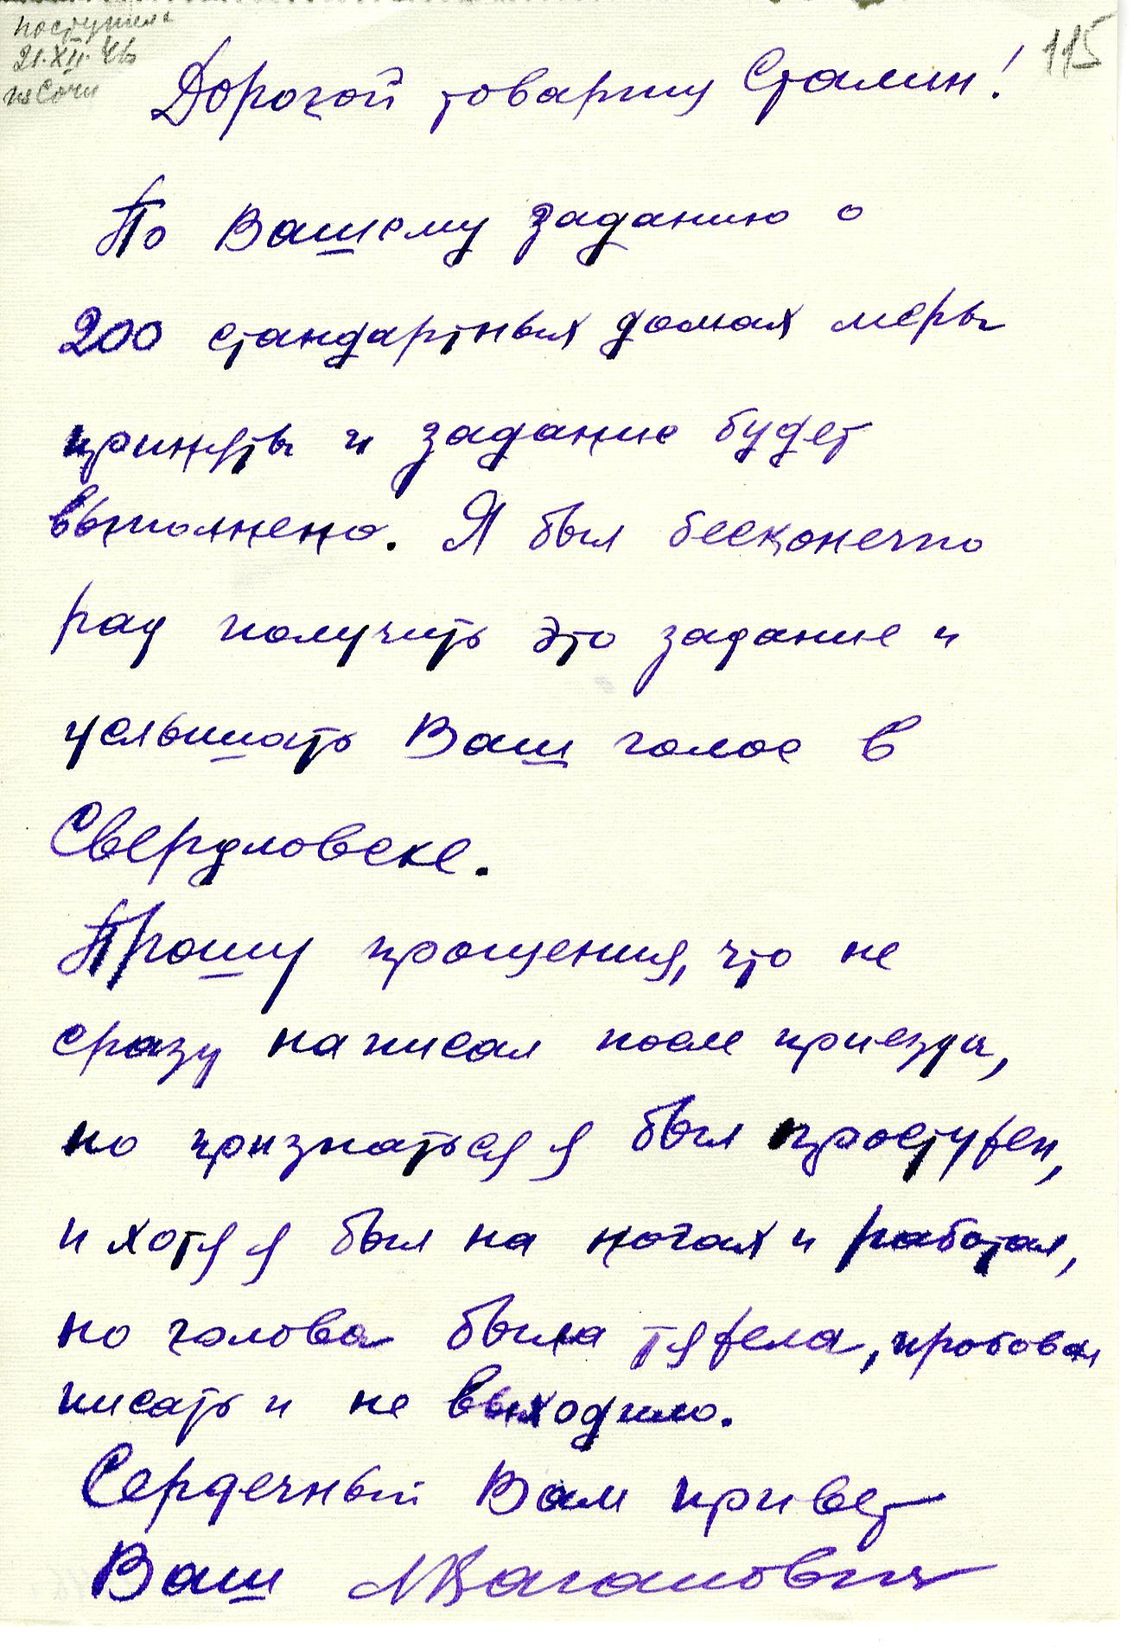 поступило
21.XII.46
из Сочи
115
Дорогой товарищ Сталин!
По Вашему заданию о
200 стандартных домах меры
приняты и задание будет
выполнено. Я был бесконечно
рад получить это задание и
услышать Ваш голос в
Свердловске.
Прошу прощения, что не
сразу написал после приезда,
но признаться я был простужен,
и хотя я был на ногах и работал,
но голова была тяжела, пробовал
писать и не выходило.
Сердечный Вам привет
Ваш ЛКаганович